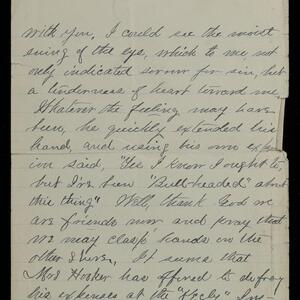 with you, I could see the moist-
ening of the eye, which to me, not
only indicated sorrow for sin, but
a tenderness of heart toward me.
Whatever the feeling may have
been, he quickly extended his
hand, and using his own expres
ion said, "Yes I know I ought to,
but I've been "Bull-headed" about
this thing". Well, thank God we
are friends now and pray that
we may clasp hands on the
other shore. It seems that
Mrs Hooker has offered to defray
his expenses at the "Keely" In-